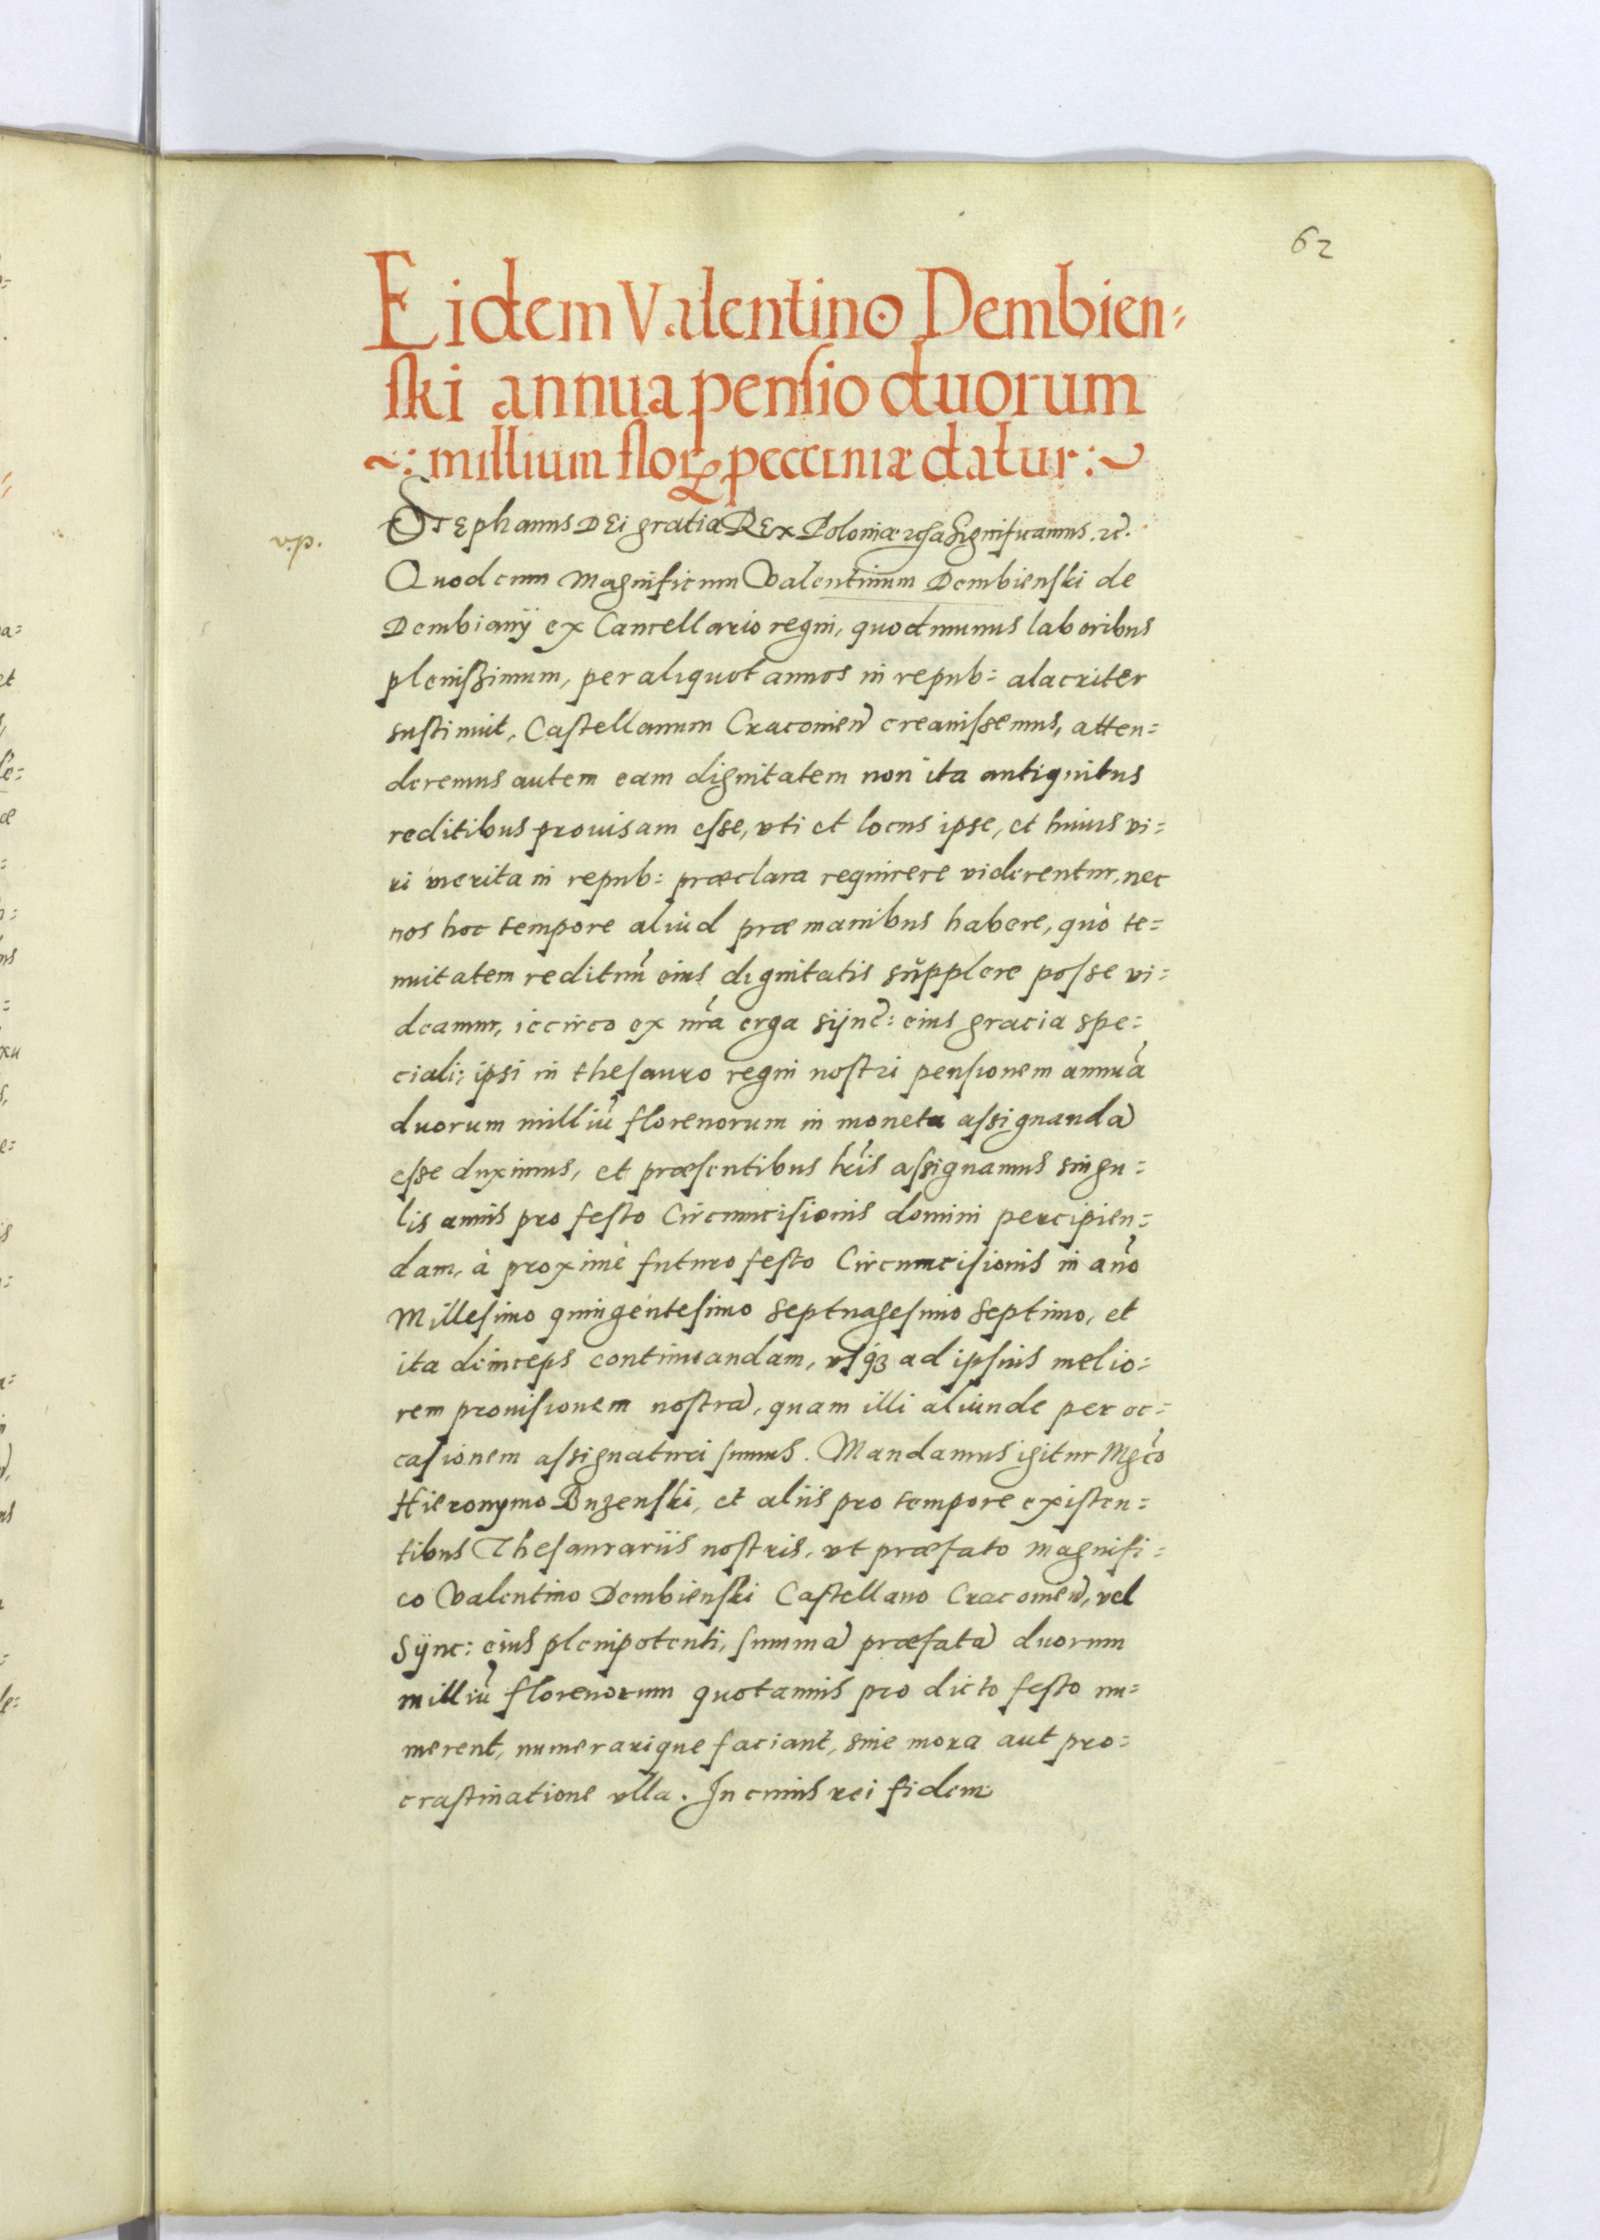 62
Eidem Valentino Dembien=
ski annua pensio duorum
~: millium flor peccuniæ datur :~
Stephanus Dei gratia Rex Poloniæ Significamus. ꝛc̃.
v.p.
Quod cum Magnificum Valentinum Dembienski de
Dembianÿ ex Cancellario regni, quod munus laboribus
plenissimum, per aliquot annos in repub: alacriter
sustinuit, Castellanum Cracouien̄ creauissemus, atten=
deremus autem eam dignitatem non ita antiquitus
reditibus prouisam esse, vti et locus ipse, et huius vi=
ri merita in repub: præclara requirere viderentur, nec
nos hoc tempore aliud præ manibus habere, quò te=
nuitatem redituũ eius dignitatis supplere posse vi=
deamur, iccirco ex nr̃a erga sÿnc̃: eius gracia spe=
ciali; ipsi in thesauro regni nostri pensionem annuã
duorum milliũ florenorum in moneta assignandã
esse duximus, et præsentibus lr̃is assignamus singu=
lis annis pro festo Circumcisionis domini percipien=
dam, à proximè futuro festo Circumcisionis in año
Millesimo quingentesimo septuagesimo septimo, et
ita deinceps continuandam, vsqꝫ ad ipsius melio=
rem prouisionem nostrã, quam illi aliunde per oc=
casionem assignaturi sumus. Mandamus igitur Mgc̃o
Hieronymo Buzenski, et aliis pro tempore existen=
tibus Thesaurariis nostris, vt præfato magnifi=
co Valentino Dembienski Castellano Cracouien̄, vel
Sÿnc: eius plenipotenti, summã præfatã duorum
milliũ florenorum quotannis pro dicto festo nu=
merent, numerarique faciant, sine mora aut pro=
crastinatione vlla. In cuius rei fidem